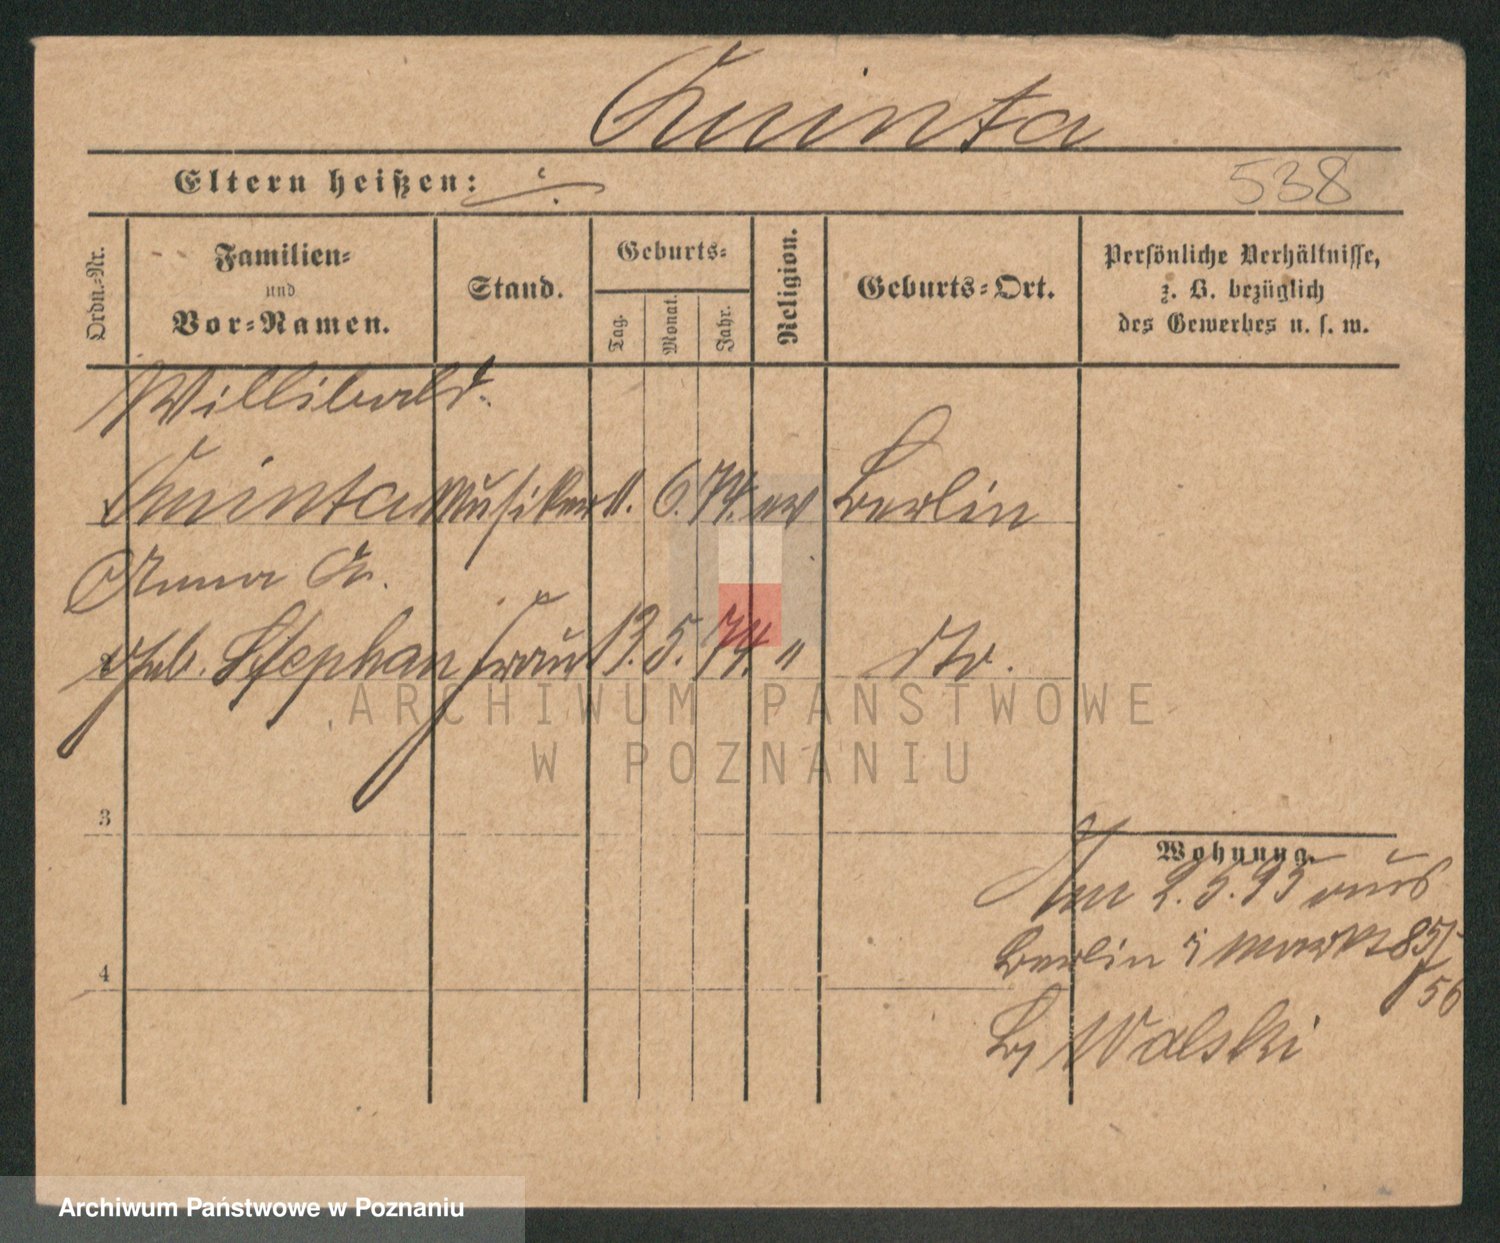 Quinta
Eltern heißen:
538
Ordn.-Nr.
Familien-
und
Vor-Namen.
Stand.
Geburts-
Tag.
Monat.
Jahr.
Religion.
Geburts-Ort.
Persönliche Verhältnisse,
z. B. bezüglich
des Gewerbes u. s. w.
Willibald
Quinta Musiker 11. 6. 74. ev Berlin
Anna A.
geb. Stephan Frau 13. 5. 74. " Do.
3
4
Wohnung.
Am 2.5.95 aus
Berlin Markt 85/
56
by Walski
ARCHIWUM PAŃSTWOWE
W POZNANIU
Archiwum Państwowe w Poznaniu